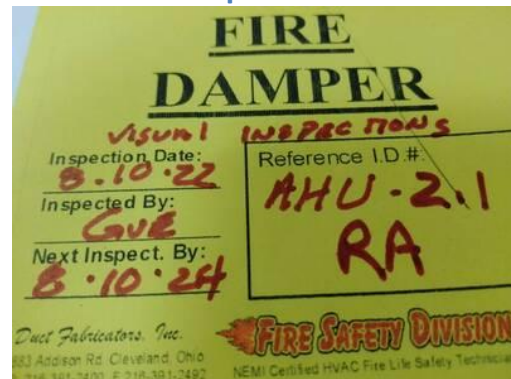 FIRE
DAMPER
VISUAl INSPECTIONS
Inspection Date:
8.10.22
Inspected By:
GVE
Next Inspect. By:
8.10.24
Reference I.D.#:
AHU-2.1
RA
Duct Fabricators, Inc.
883 Addison Rd. Cleveland, Ohio
216-391-2400 F 216-391-2492
FIRE SAFETY DIVISION
NEMI Certified HVAC Fire Life Safety Technician